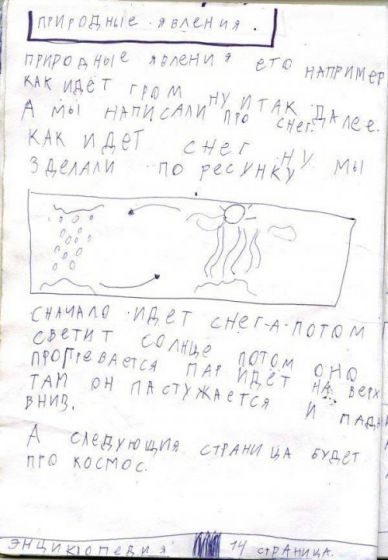 ПРИРОДНЫЕ ЯВЛЕНИЯ.
ПРИРОДНЫЕ ЯВЛЕНИЯ ЕТО НАПРИМЕР
КАК ИДЁТ ГРОМ НУ И ТАК ДАЛЕЕ.
А МЫ НАПИСАЛИ ПРО СНЕГ.
КАК ИДЕТ СНЕГ НУ МЫ
ЗДЕЛАЛИ ПО РЕСУНКУ
СНАЧАЛО ИДЕТ СНЕГ-А-ПОТОМ
СВЕТИТ СОЛНЦЕ ПОТОМ ОНО
ПРОГРЕВАЕТСЯ ПАР ИДЕТ НА ВЕРХ
ТАМ ОН ПАСТУЖАЕТСЯ И ПАДАИ
ВНИЗ.
А СЛЕДУЮЩИЯ СТРАНИЦА БУДЕТ
ПРО КОСМОС.
ЭНЦИКЛОПЕДИЯ 14 СТРАНИЦА.